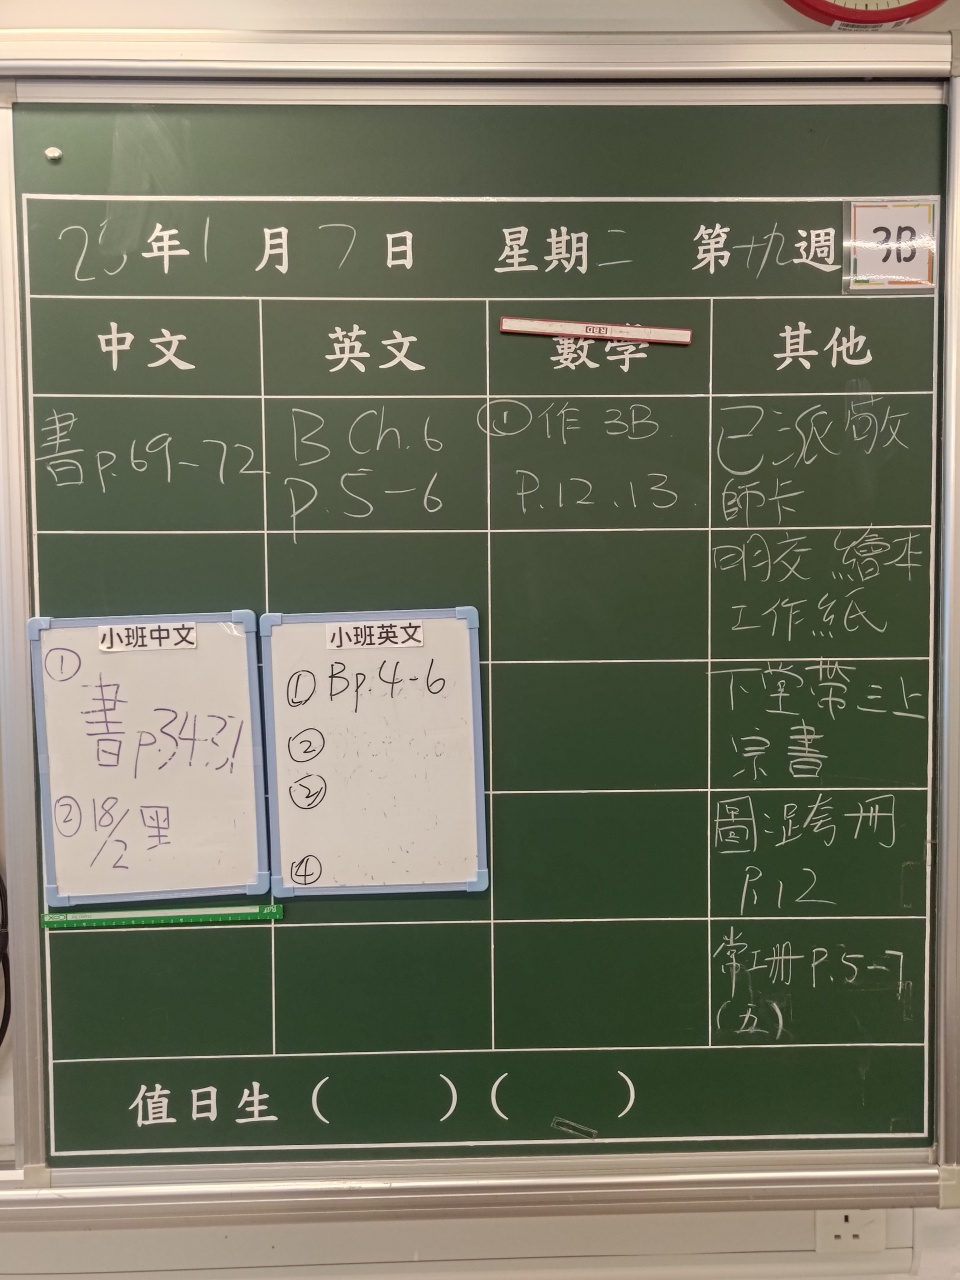 25年1月7日 星期二 第十九週 3B
中文 英文 數學 其他
書p.69-72
B Ch.6
p.5-6
① 作 3B
P.12、13
已派敬
師卡
明交 繪本
工作紙
下堂帶三上
宗書
圖:跨冊
P.12
常工冊 P.5-7
(五)
小班中文
①
書
② 18/2
小班英文
① Bp.4-6
②
③
④
值日生 ( ) ( )